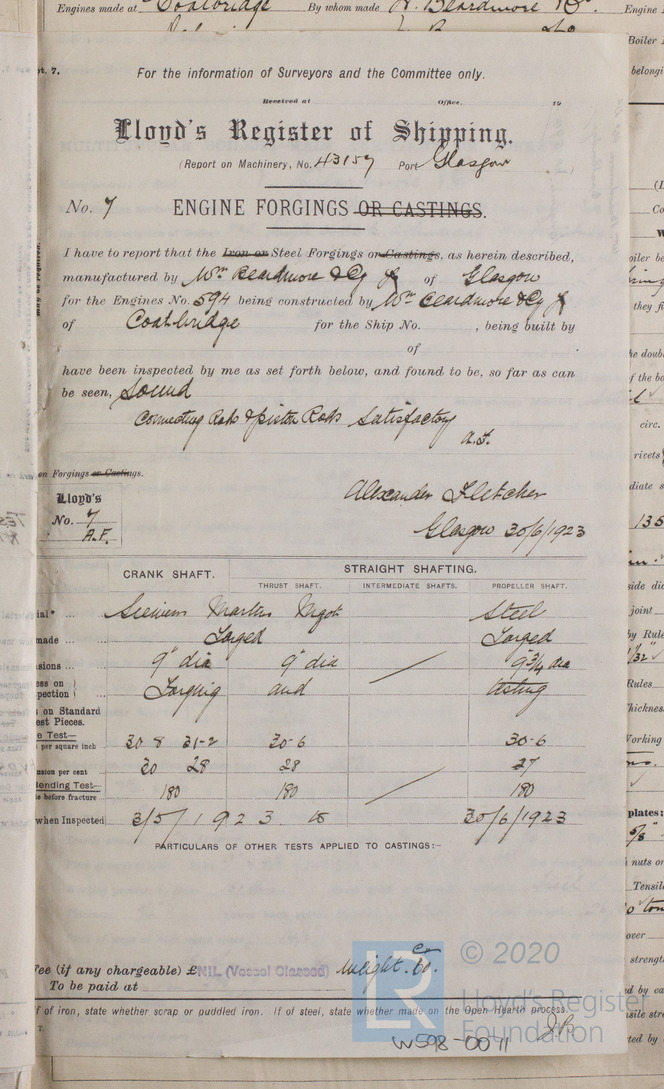 Engines made at Coatbridge By whom made W. Beardmore & Co. Engine
Boiler
belongi
pt. 7.
For the information of Surveyors and the Committee only.
Received at Office. 19
Lloyd's Register of Shipping.
(Report on Machinery, No. 43157 Port Glasgow
No. 7 ENGINE FORGINGS OR CASTINGS.
I have to report that the Iron or Steel Forgings or Castings, as herein described,
manufactured by Wm Beardmore & Cy of Glasgow
for the Engines No. 594 being constructed by Wm Beardmore & Cy
of Coatbridge for the Ship No. , being built by
of
have been inspected by me as set forth below, and found to be, so far as can
be seen, Sound
Connecting Rods & piston Rods Satisfactory
A.F.
on Forgings or Castings.
Lloyd's
No. 7
A.F.
Alexander Fletcher
Glasgow 30/6/1923
CRANK SHAFT. STRAIGHT SHAFTING.
THRUST SHAFT. INTERMEDIATE SHAFTS. PROPELLER SHAFT.
ial* ... Siemens Martin Ingot Steel
made ... Forged Forged
sions ... 9" dia 9" dia 9 3/4 dia
ess on } Forging and testing
pection } ...
s on Standard
est Pieces.
e Test—
s per square inch 30·8 31-2 30-6 30-6
nsion per cent 30 28 28 27
Bending Test—
le before fracture 180 180 180
when Inspected 3/5/1923 to 30/6/1923
PARTICULARS OF OTHER TESTS APPLIED TO CASTINGS:-
Fee (if any chargeable) £ NIL (Vessel Classed) Weight
To be paid at
If of iron, state whether scrap or puddled iron. If of steel, state whether made on the Open Hearth process.
W598-0011
LR © 2020
Lloyd's Register
Foundation